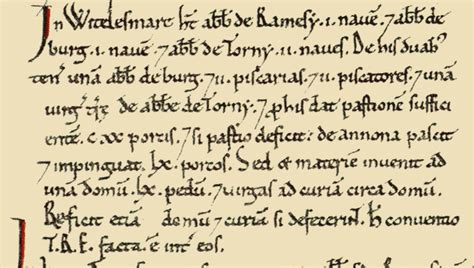 In Witelesmare ht̄ abb̄ de Ramesẏ .i. nauē. ⁊ abb̄ de
burg .i. nauē. ⁊ abb̄ de Torny .ii. naues. De his duab⁊
ten̄ unā abb̄ de burg. ⁊ .ii. piscarias. ⁊ .ii. piscatores. ⁊ unā
uirg̃ tr̄æ de abbe de Torny. ⁊ ꝓ his dat pastionē suffici
entē .cxx. porcis. ⁊ si pastio deficit: de annona pascit
⁊ impinguat .lx. porcos. Sed ⁊ materiē inuenit ad
unā domū .lx. pedū. ⁊ uirgas ad curiā circa domū.
Reficit etiā domū ⁊ curiā si defecerint. H̄ conuentio
T.R.E. facta .ē. int̄ eos.